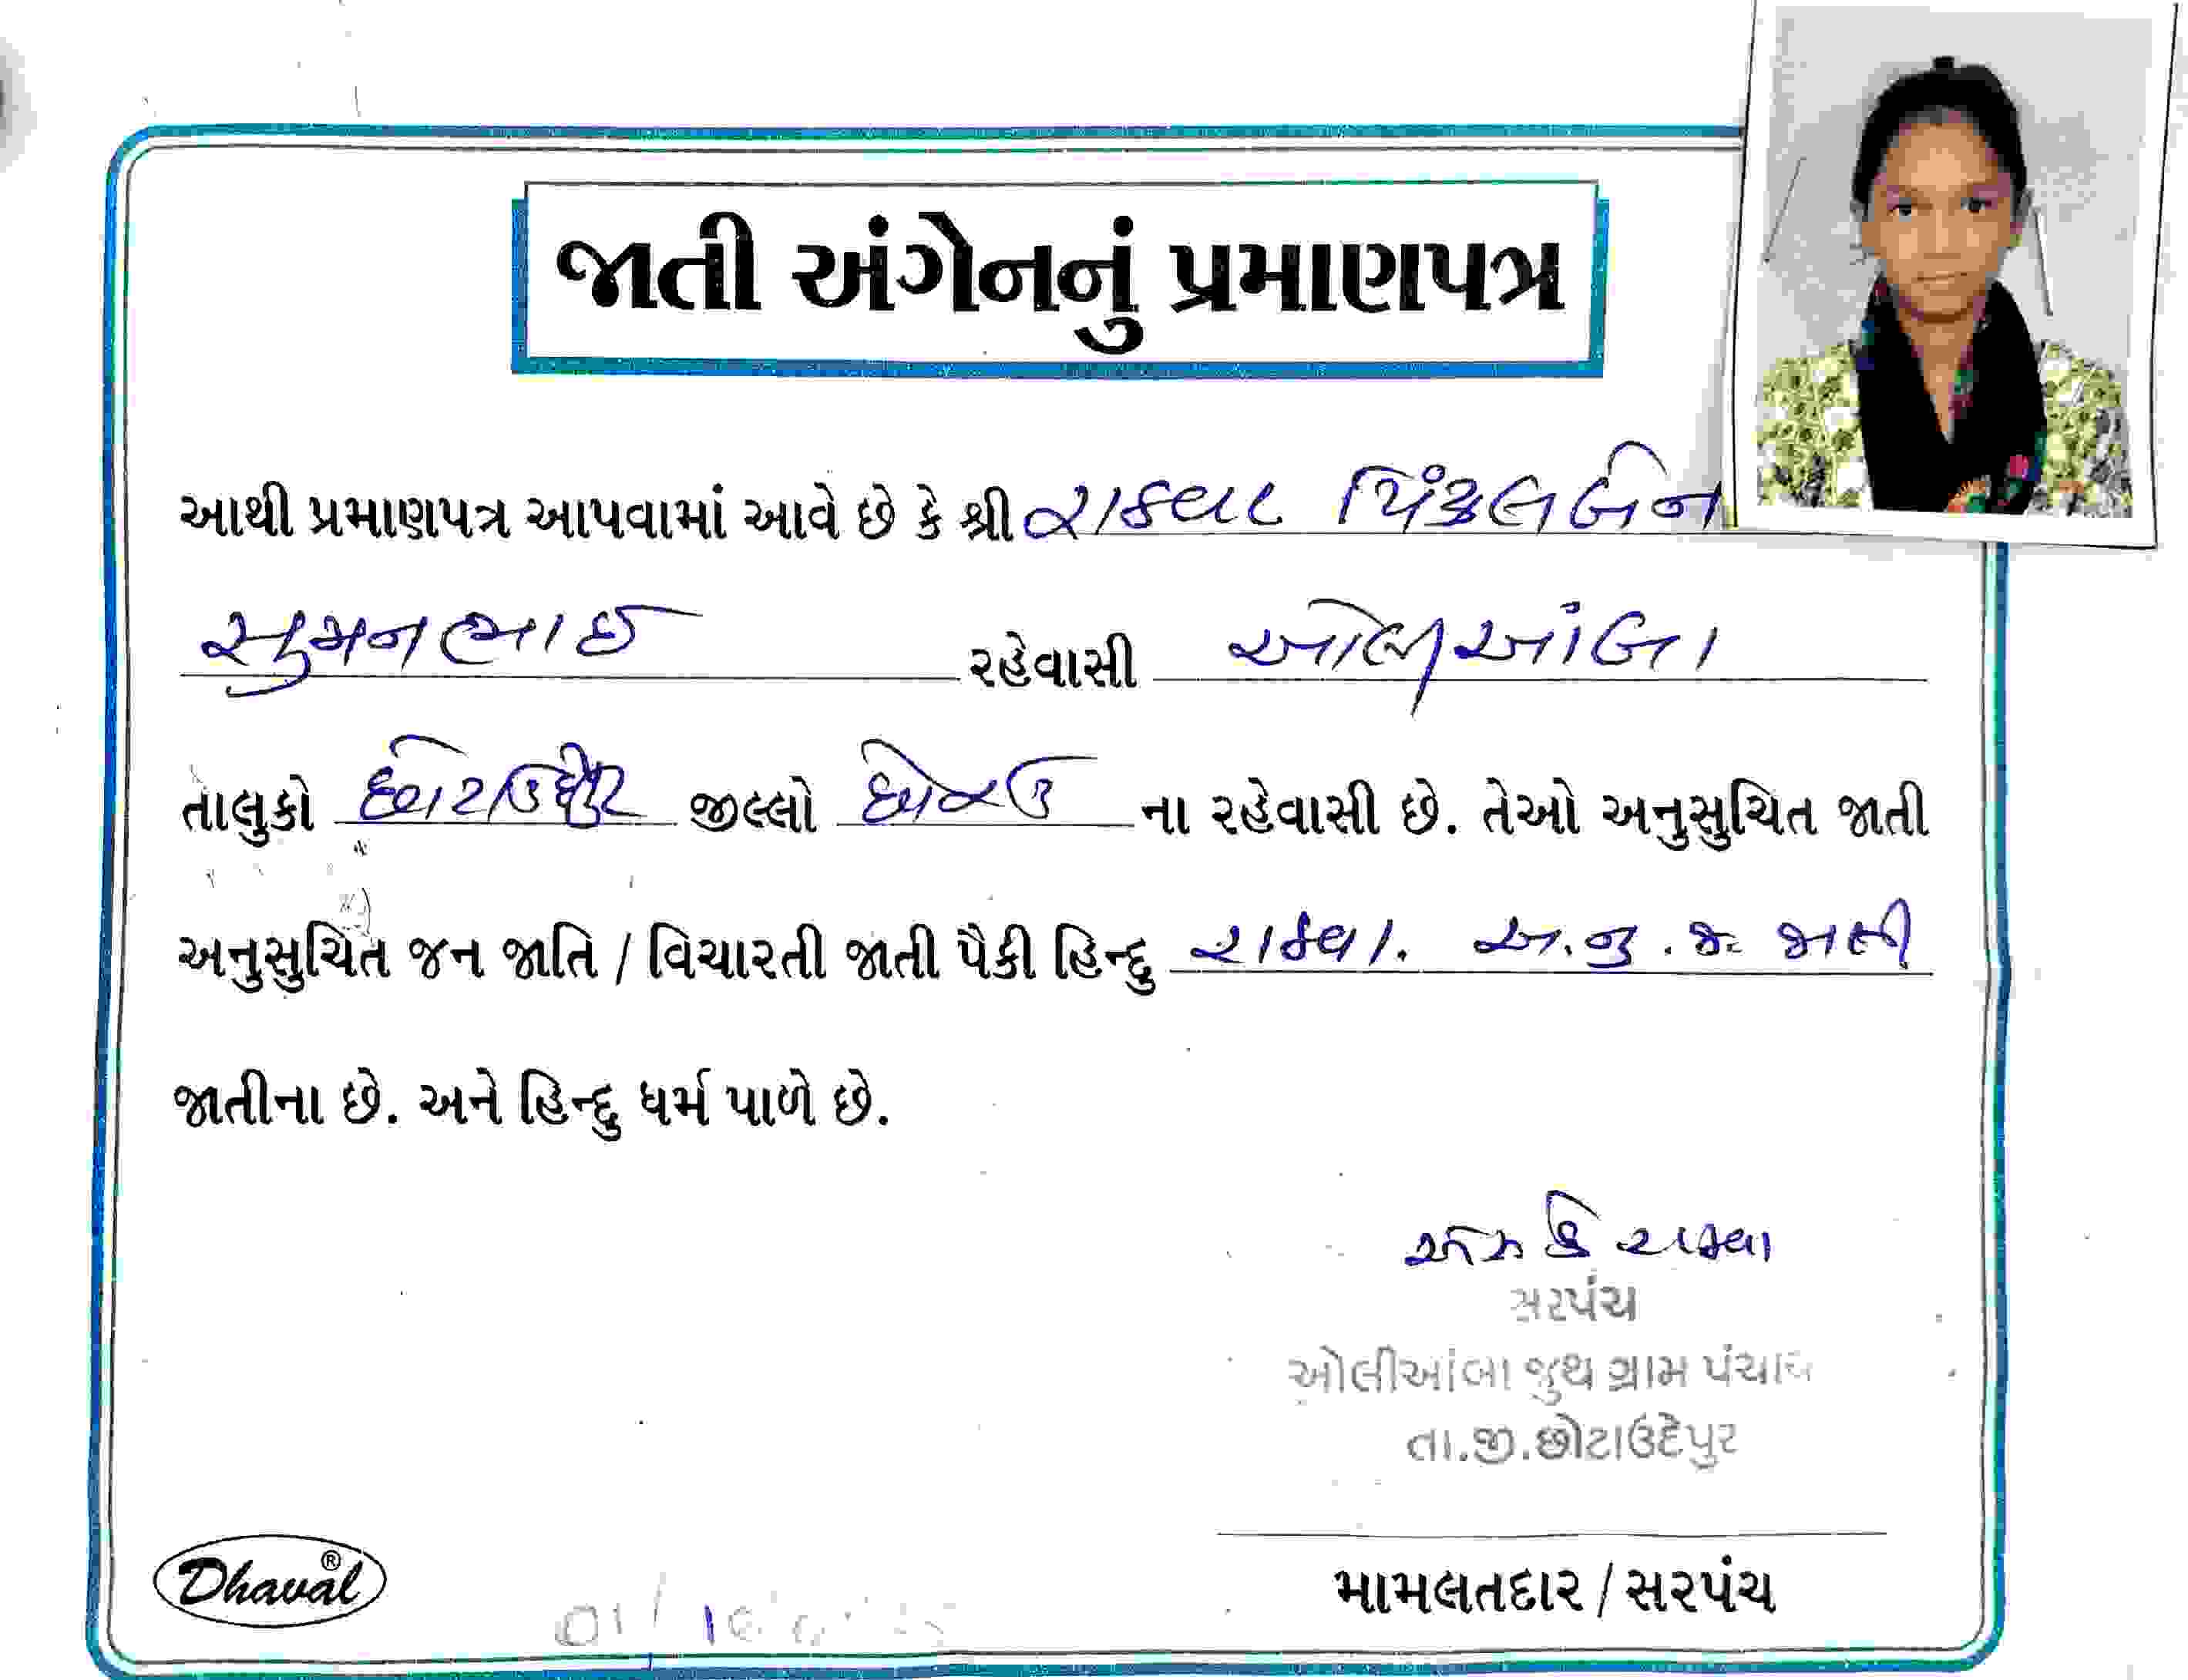 જાતી અંગેનનું પ્રમાણપત્ર
આથી પ્રમાણપત્ર આપવામાં આવે છે કે શ્રી રાઠવા પિંકલબેન
સુમનભાઈ રહેવાસી ઓલીઆંબા
તાલુકો છોટાઉદેપુર જીલ્લો છોટાઉ ના રહેવાસી છે. તેઓ અનુસુચિત જાતી
અનુસુચિત જન જાતિ / વિચારતી જાતી પૈકી હિન્દુ રાઠવા. અ.નુ.જ. જાતી
જાતીના છે. અને હિન્દુ ધર્મ પાળે છે.
રાઠવા
સરપંચ
ઓલીઆંબા જુથ ગ્રામ પંચાય
તા.જી.છોટાઉદેપુર
Dhaval®
મામલતદાર / સરપંચ